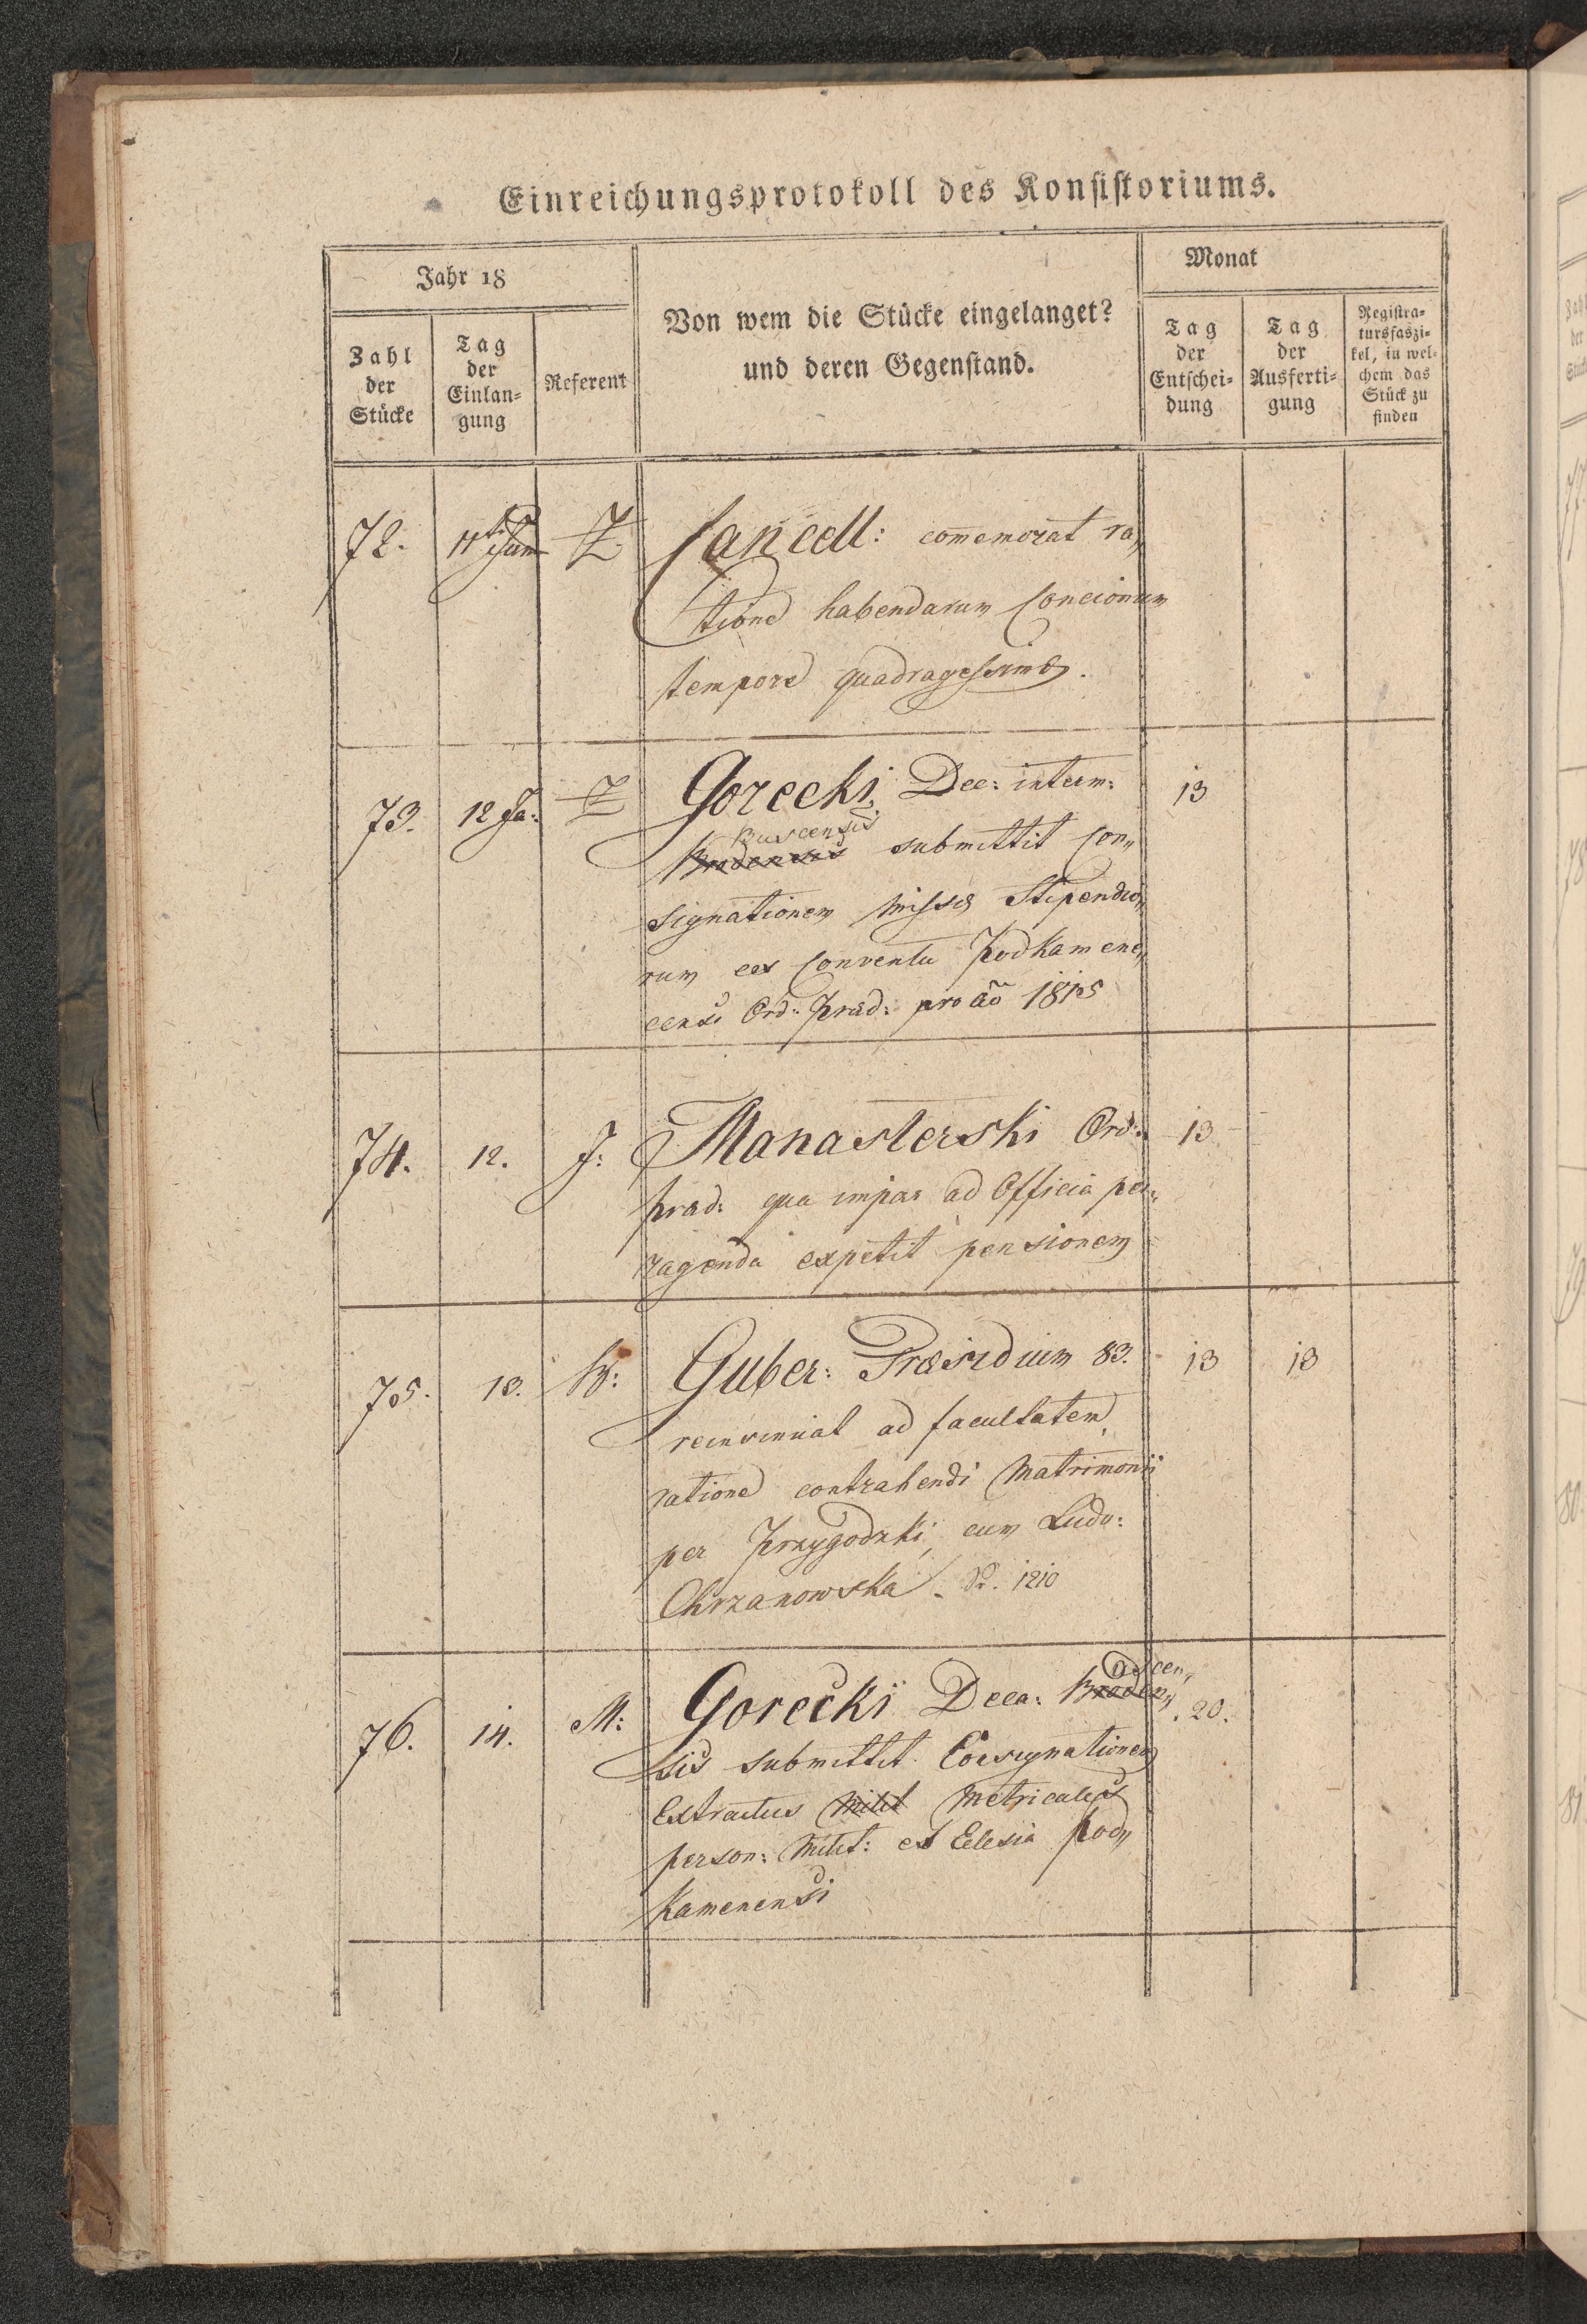 Einreichungsprotokoll des Konsistoriums.
Jahr 18
Monat
Zahl der Stücke
Tag der Einlan= gung
Referent
Von wem die Stücke eingelanget?
und deren Gegenstand.
Tag der Entschei= dung
Tag der Ausferti= gung
Registra= tursfaszi= kel, in wel= chem das Stück zu finden
72. 11 Z. Cancell: com̄emorat ra„
tione habendarum Concionum
tempore quadragessimæ.
73. 12 Ja: Z Gorecki Dec: interm: 13
Buscensis
Brodensis submittit Con„
signationem Missæ Stipendio„
rum ex Conventu Podkamene„
censi Ord: Præd: pro aõ 1815
74. 12. J: Manasterski Ord: 13
Præd: qua impar ad Officia pe„
ragenda expetit pensionem
75. 13. W: Guber: Præsidium 83. 13 13
reinvinuat ad facultatem
ratione contrahendi Matrimonii
per Przygodzki cum Ludo:
Chrzanowska. 1210
76. 14. M: Gorecki Deca: Broden„ 20.
uscen„
sis submittit Consignationem
Extractus Milit Metricales
person: Milit: ex Eclesia Pod„
kamenensi